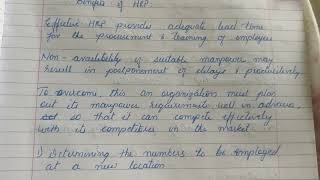 Benefits of HRP.
Effective HRP provides adequate lead time
for the procurement & training of employees
Non-availability of suitable manpower may
result in postponement of delays & productivity
To overcome, this an organization must plan
out its manpower requirements well in advance,
so that it can compete effectively
with its competitors in the market
1) Determining the numbers to be employed
at a new location